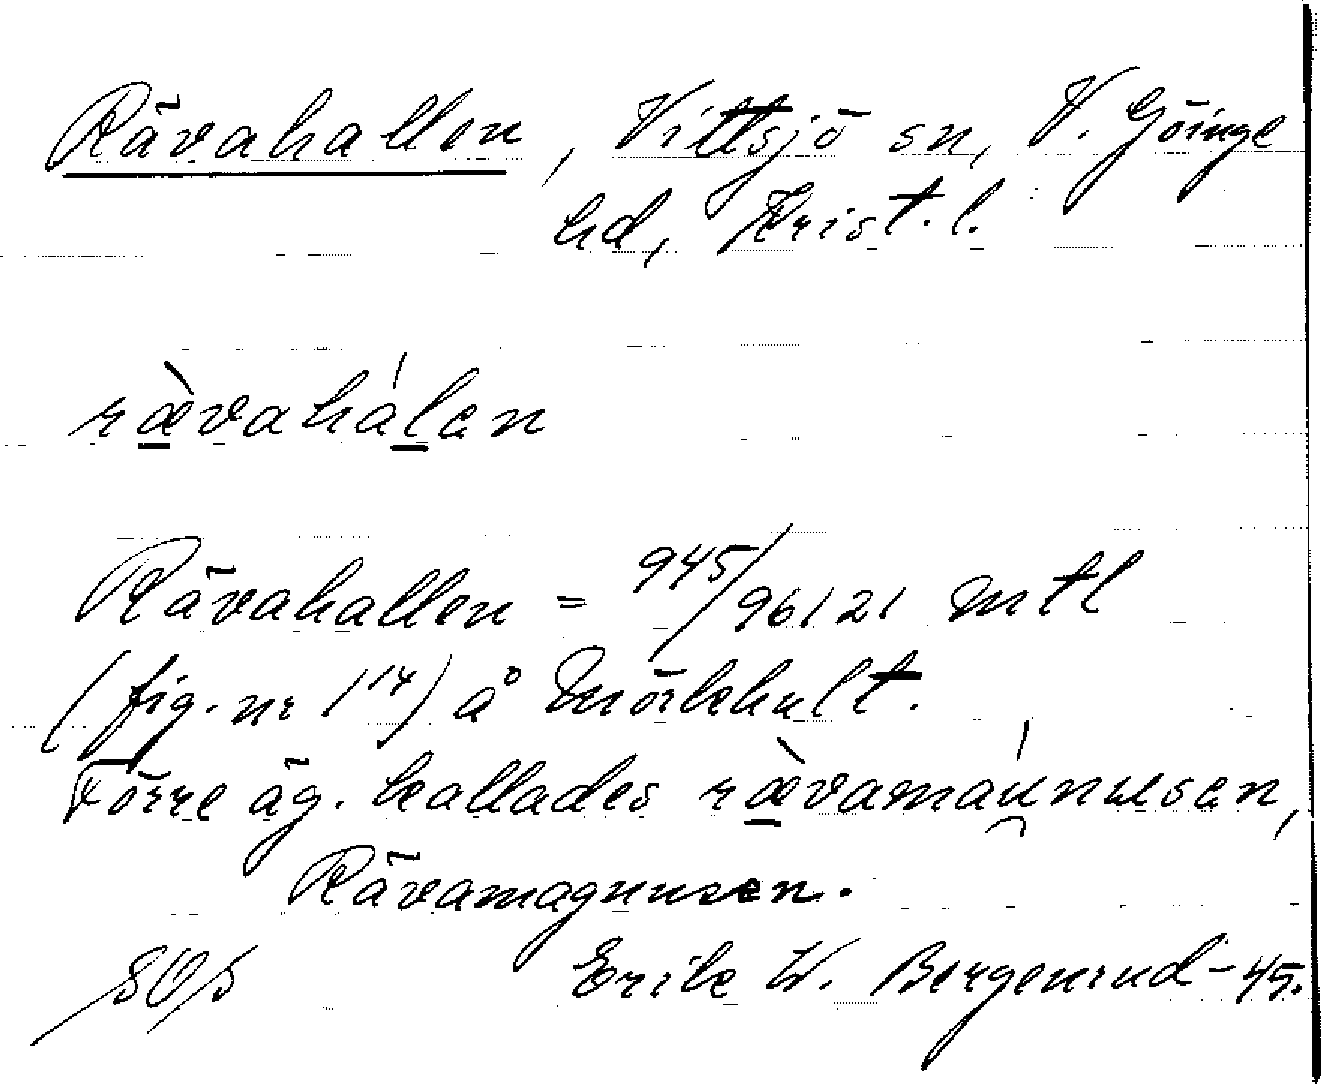 Rävahallen, Vittsjö sn, V. Göinge
hd, Krist. l.
ræ̀vahálen
Rävahallen = 945/96121 mtl
(fig. nr 1¹⁴) å Mörkhult.
Förre äg. kallades ræ̀vamáunusen,
Rävamagnusen.
Erik W. Bergenrud -45.